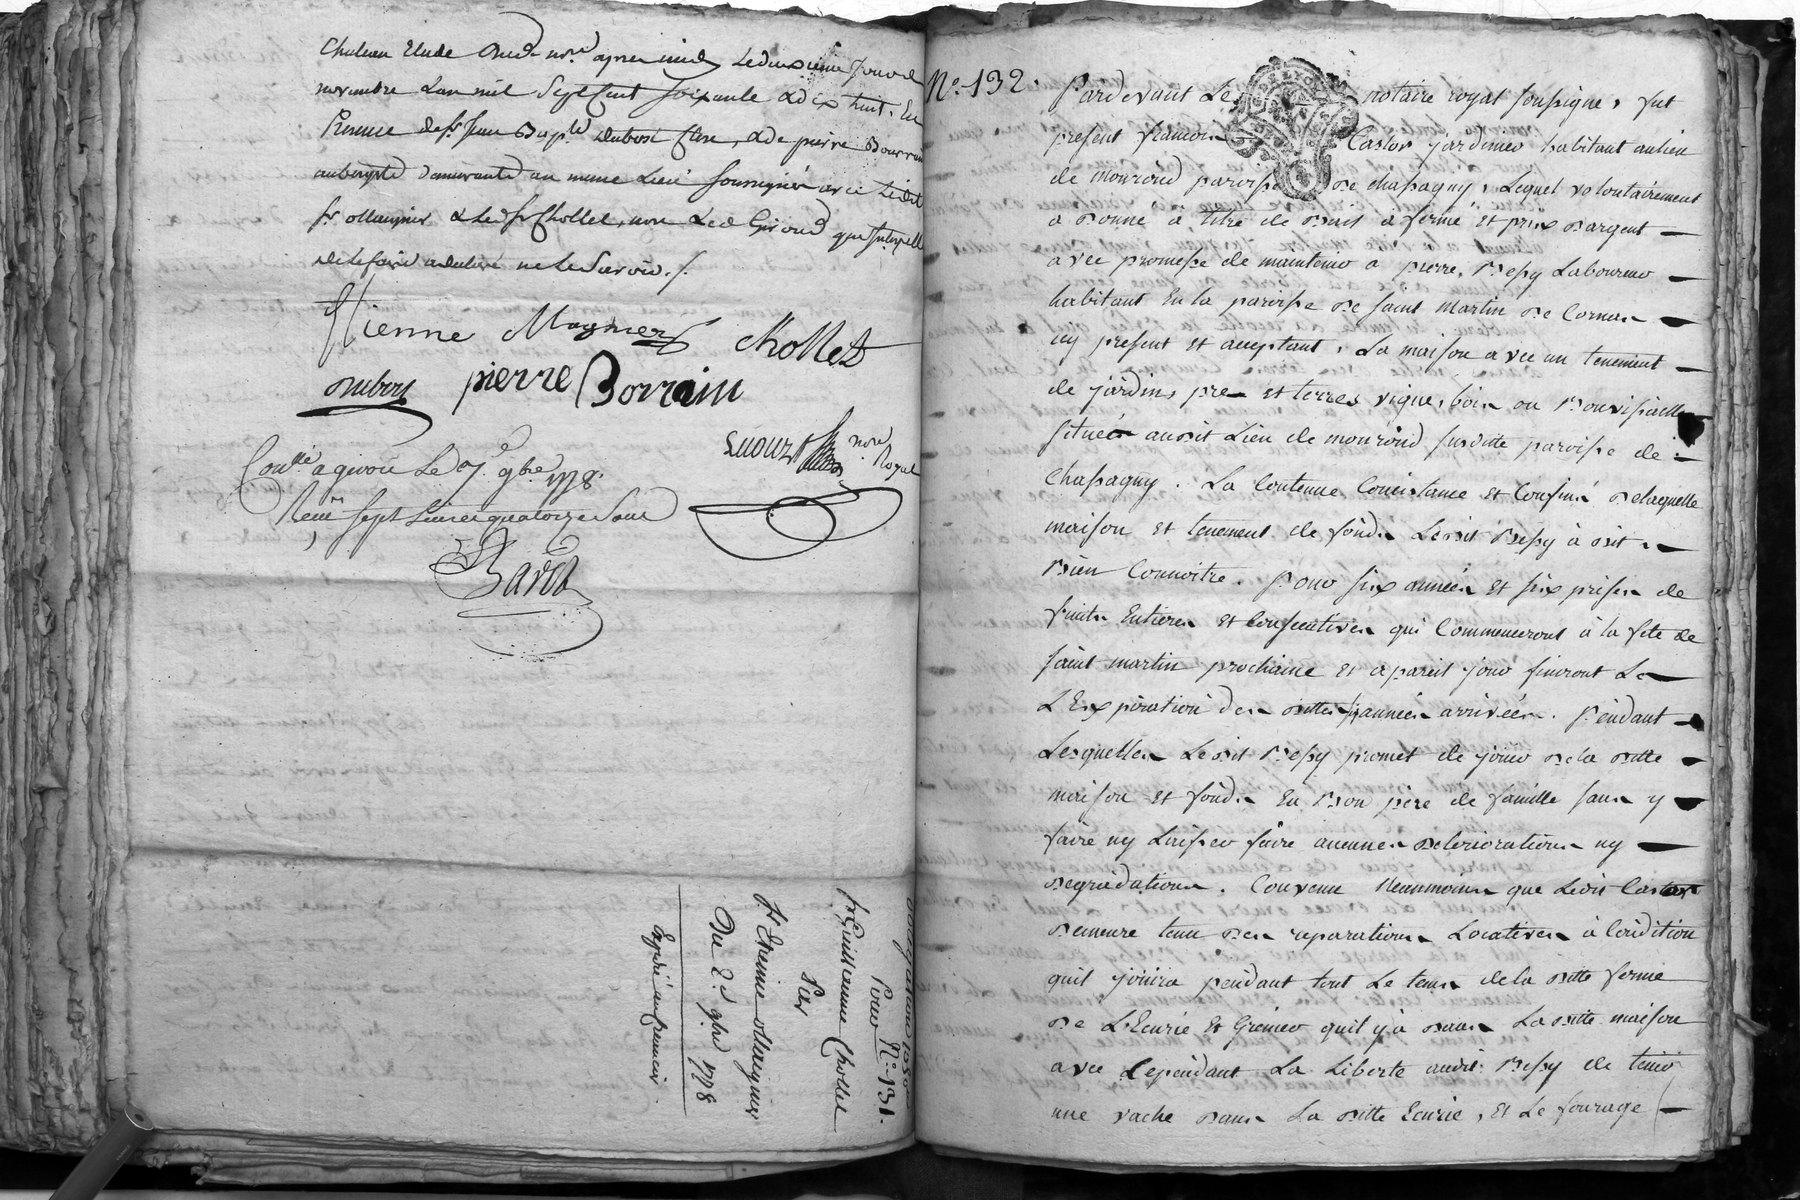 Chateau Etude dud. nore apres midy Le deuxieme Jour de
novembre L'an mil Sept Cent soixante & dix huit. En
Presence de sr Jean Bapte dubost , & de pierre Bourrain
aubergiste demeurants au meme Lieu soussignés avec Ledit
sr Magnier & Led sr Chollet, non Led Giroud
de le faire a declaré ne le Savoir ./.
Etienne Magnier chollet
Dubost pierre Borrain
nore Royal
Conllé a givors Le 7e 9bre 1778.
Reçu sept Livres quatorze Sous
Bavet
Pour N° 131.
sr Guillaume Chollet
Par
sr Etienne Magnier
Du 2e 9bre 1778
N° 132.
Pardevant Le notaire royal soussigné, fut
present francois Castor jardinier habitant au lieu
de mourond paroisse de chassagny, Lequel volontairement
a donné à titre de Bail a ferme et prix d'argent
avec promesse de maintenir a pierre Bessy Laboureur
habitant En la paroisse de saint martin de Cornas
icy present et acceptant, La maison avec un tenement
de jardin, pre et terres vigne, bois ou Broussailles
situés audit Lieu de mourond susditte paroisse de
chassagny. La Contenue Consistance et Confins delaquelle
maison et tenement de fonds Ledit Bessy à dit
Bien Connoitre. Pour six années et six prises de
fruits Entieres et Consecutives qui Commenceront à la fete de
saint martin prochaine et a pareil jour finiront Le
L'Expiration des dittes six années arrivées. Pendant
Lesquelles Ledit Bessy promet de jouir dela ditte
maison et fonds En Bon père de famille sans y
faire ny Laisser faire aucunes deteriorations ny
degradations. Convenu Neanmoins que Ledit Castor
demeure tenu des reparations Locatives à Condition
quil jouira pendant tout Le tems dela ditte ferme
de L'Ecurie Et Grenier quil y à dans La ditte maison
avec Cependant La Liberté audit Bessy de tenir
une vache dans La ditte Ecurie, et Le fourage